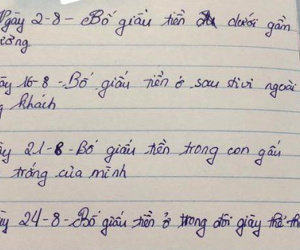 Ngày 2-8- Bố giấu tiền dưới gầm
ường
ày 16-8-Bố giấu tiền ở sau tivi ngoài
g khách
ày 21-8-Bố giấu tiền trong con gấu
trắng của mình
ày 24-8-Bố giấu tiền ở trong đôi giày thể